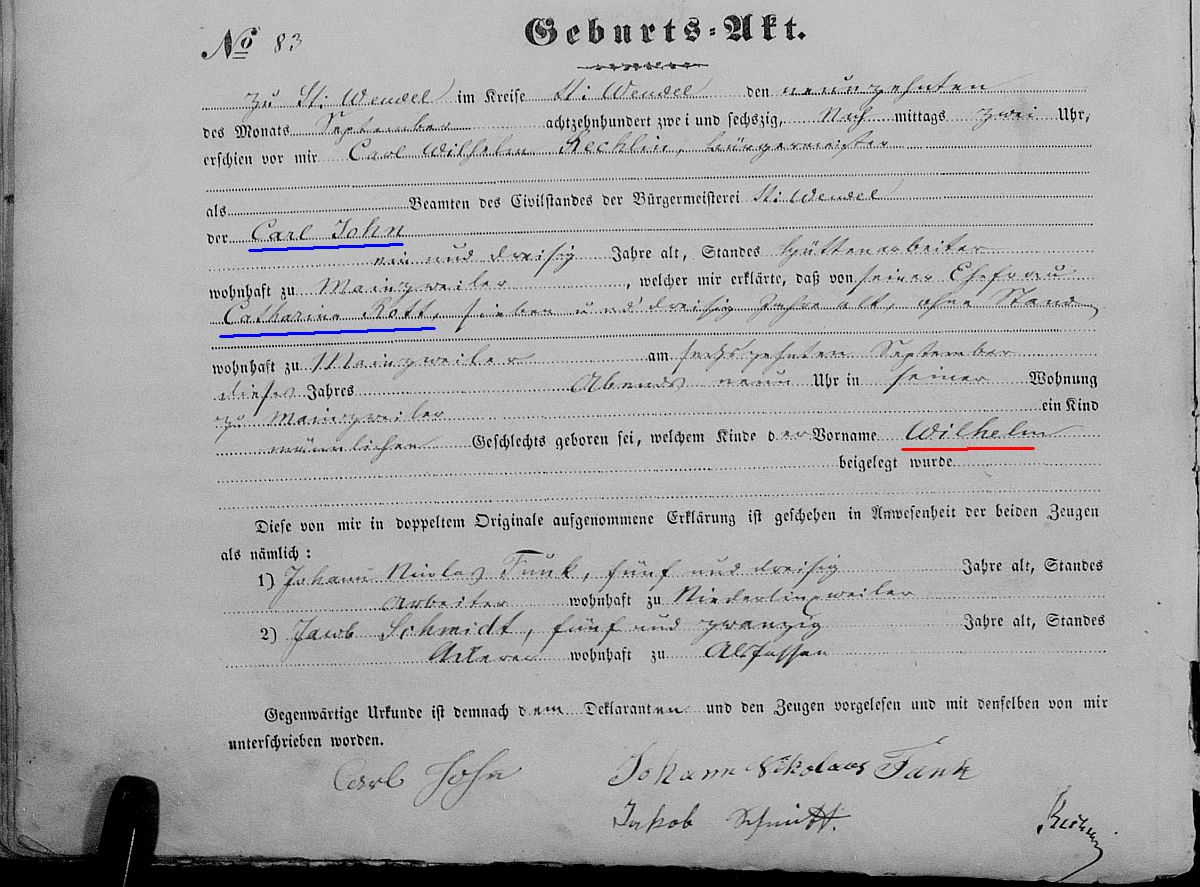 No 83 Geburts-Akt.
Zu St: Wendel im Kreise St: Wendel den neunzehnten
des Monats September achtzehnhundert zwei und sechszig, Nach mittags zwei Uhr,
erschien vor mir Carl Wilhelm Rechlin, Bürgermeister
als Beamten des Civilstandes der Bürgermeisterei St: Wendel
der Carl John
ein und dreisig Jahre alt, Standes Hüttenarbeiter
wohnhaft zu Mainzweiler, welcher mir erklärte, daß von seiner Ehefrau
Catharina Rott, sieben und dreisig Jahre alt, ohne Stand
wohnhaft zu Mainzweiler am sechszehnten September
dieses Jahres Abends neun Uhr in seiner Wohnung
zu Mainzweiler ein Kind
männlichen Geschlechts geboren sei, welchem Kinde der Vorname Wilhelm
beigelegt wurde
Diese von mir in doppeltem Originale aufgenommene Erklärung ist geschehen in Anwesenheit der beiden Zeugen
als nämlich:
1) Johann Nicolas Funk, fünf und dreisig Jahre alt, Standes
Arbeiter wohnhaft zu Niederlinxweiler
2) Jacob Schmidt, fünf und zwanzig Jahre alt, Standes
Ackerer wohnhaft zu Alsfassen
Gegenwärtige Urkunde ist demnach dem Deklaranten und den Zeugen vorgelesen und mit denselben von mir
unterschrieben worden.
Carl John Johann Nikolaus Funk
Jakob Schmitt.